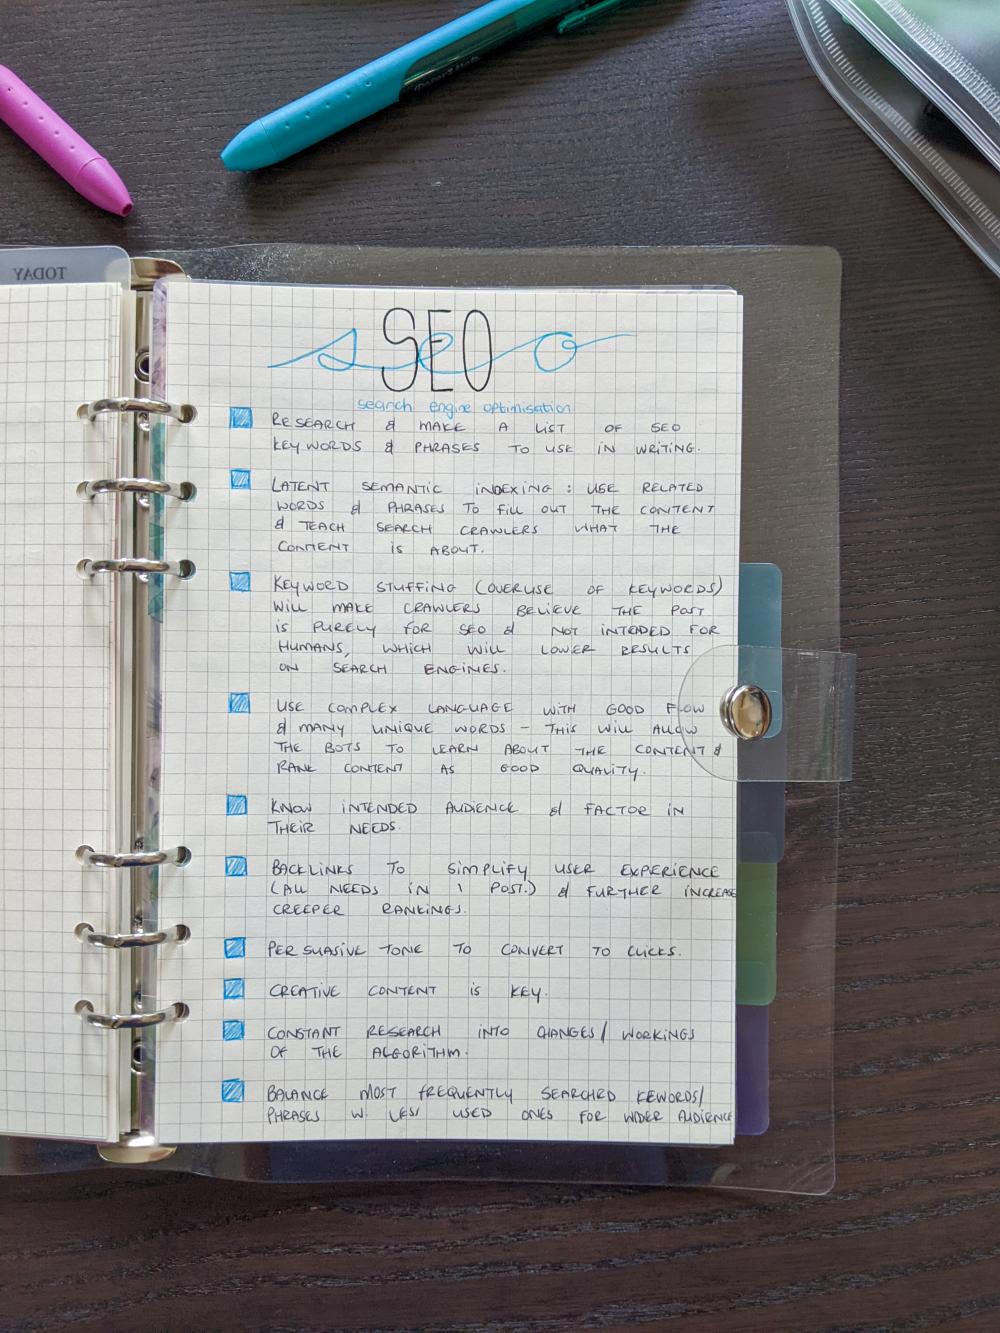 TODAY
SEO
seo
search engine optimisation
RESEARCH & MAKE A LIST OF SEO
KEYWORDS & PHRASES TO USE IN WRITING.
LATENT SEMANTIC INDEXING : USE RELATED
WORDS & PHRASES TO FILL OUT THE CONTENT
& TEACH SEARCH CRAWLERS WHAT THE
CONTENT IS ABOUT.
KEYWORD STUFFING (OVERUSE OF KEYWORDS)
WILL MAKE CRAWLERS BELIEVE THE POST
IS PURELY FOR SEO & NOT INTENDED FOR
HUMANS, WHICH WILL LOWER RESULTS
ON SEARCH ENGINES.
USE COMPLEX LANGUAGE WITH GOOD FLOW
& MANY UNIQUE WORDS – THIS WILL ALLOW
THE BOTS TO LEARN ABOUT THE CONTENT &
RANK CONTENT AS GOOD QUALITY.
KNOW INTENDED AUDIENCE & FACTOR IN
THEIR NEEDS.
BACKLINKS TO SIMPLIFY USER EXPERIENCE
(ALL NEEDS IN 1 POST.) & FURTHER INCREASE
CREEPER RANKINGS.
PERSUASIVE TONE TO CONVERT TO CLICKS.
CREATIVE CONTENT IS KEY.
CONSTANT RESEARCH INTO CHANGES/ WORKINGS
OF THE ALGORITHM.
BALANCE MOST FREQUENTLY SEARCHED KEWORDS/
PHRASES W. LESS USED ONES FOR WIDER AUDIENCE